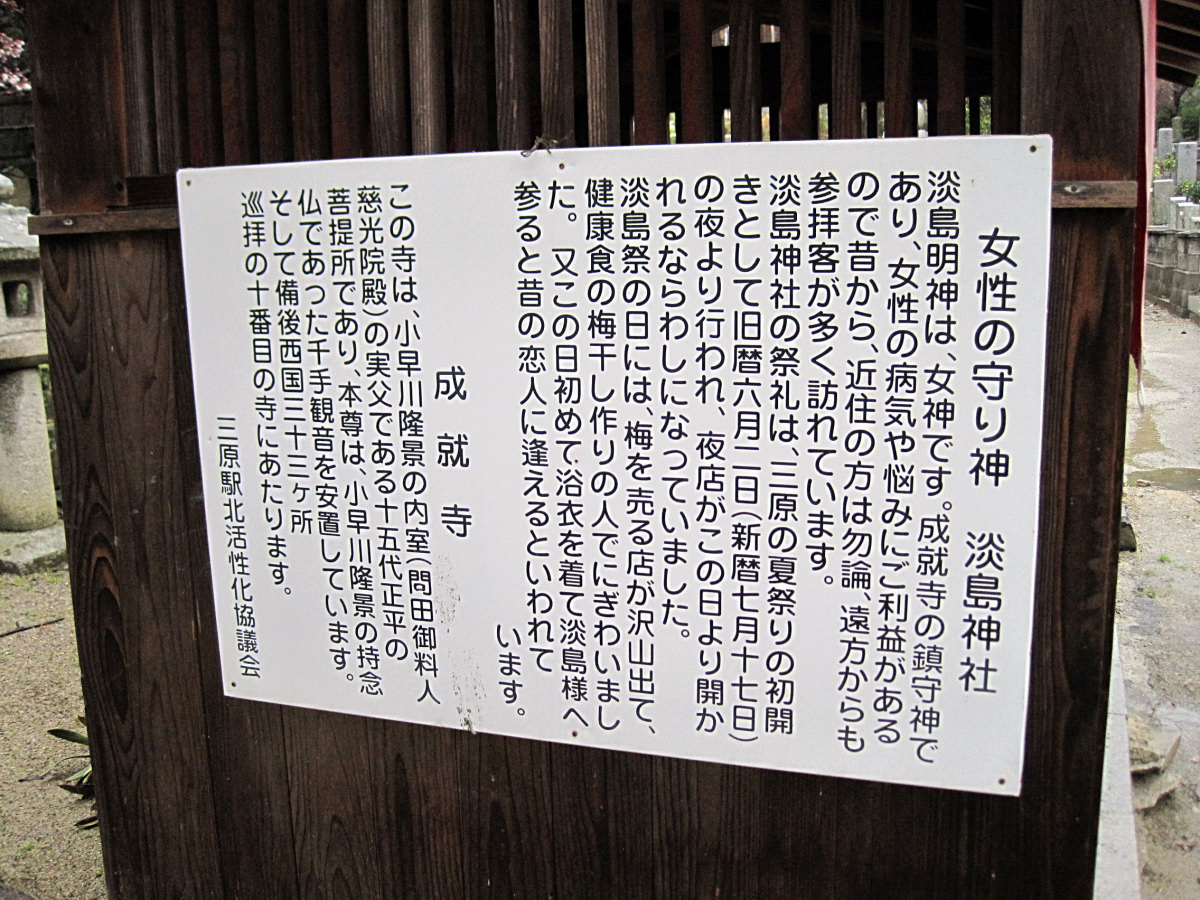 女性の守り神　淡島神社
淡島明神は、女神です。成就寺の鎮守神で
あり、女性の病気や悩みにご利益がある
ので昔から、近住の方は勿論、遠方からも
参拝客が多く訪れています。
淡島神社の祭礼は、三原の夏祭りの初開
きとして旧暦六月二日（新暦七月十七日）
の夜より行われ、夜店がこの日より開か
れるならわしになっていました。
淡島祭の日には、梅を売る店が沢山出て、
健康食の梅干し作りの人でにぎわいまし
た。又この日初めて浴衣を着て淡島様へ
参ると昔の恋人に逢えるといわれて
います。
成就寺
この寺は、小早川隆景の内室（問田御料人
慈光院殿）の実父である十五代正平の
菩提所であり、本尊は、小早川隆景の持念
仏であった千手観音を安置しています。
そして備後西国三十三ヶ所
巡拝の十番目の寺にあたります。
三原駅北活性化協議会